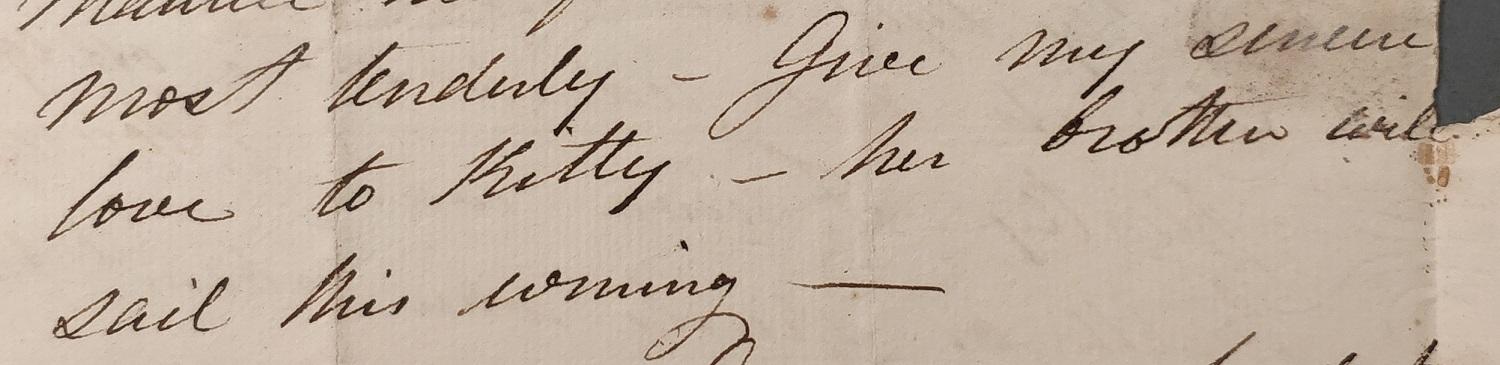 most tenderly - Give my sincere
love to Kitty - her brother will
sail this coming —